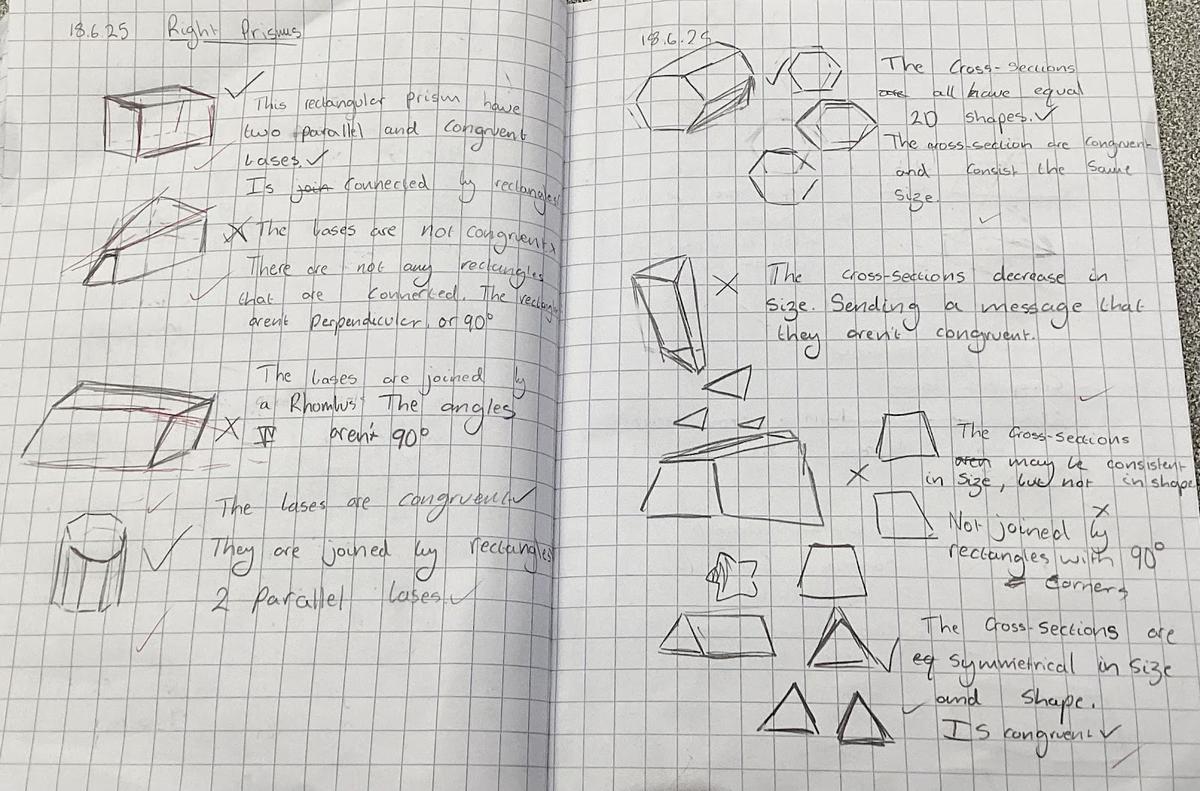 18.6.25 Right Prisms
This rectangular prism have
two parallel and congruent
bases.
Is join connected by rectangles
The bases are not congruent
There are not any rectangles
that are connected. The rectangles
arent perpendicular or 90°
The bases are joined by
a Rhombus The angles
aren't 90°
The bases are congruent
They are joined by rectangles
2 parallel bases
18.6.25
The Cross-sections
are all have equal
2D shapes.
The cross-section are congruent
and consist the same
size.
The cross-sections decrease in
size. Sending a message that
they aren't congruent.
The Cross-sections
aren may be consistent
in size, but not in shape
Not joined by
rectangles with 90°
corners
The Cross-sections are
eq symmetrical in size
and shape.
Is congruent